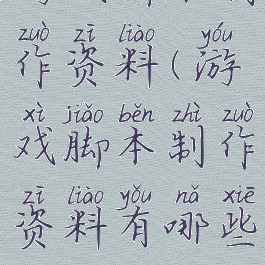 zuò zī liào yóu
作资料(游
xì jiǎo běn zhì zuò
戏脚本制作
zī liào yǒu nǎ xiē
资料有哪些